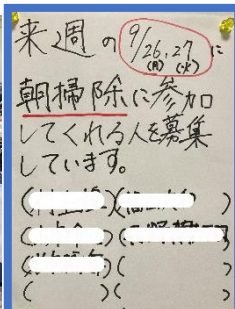 来週の9/26,27に
(月)(火)
朝掃除に参加
してくれる人を募集
しています。
( )( )
( )( )
( )( )
( )( )